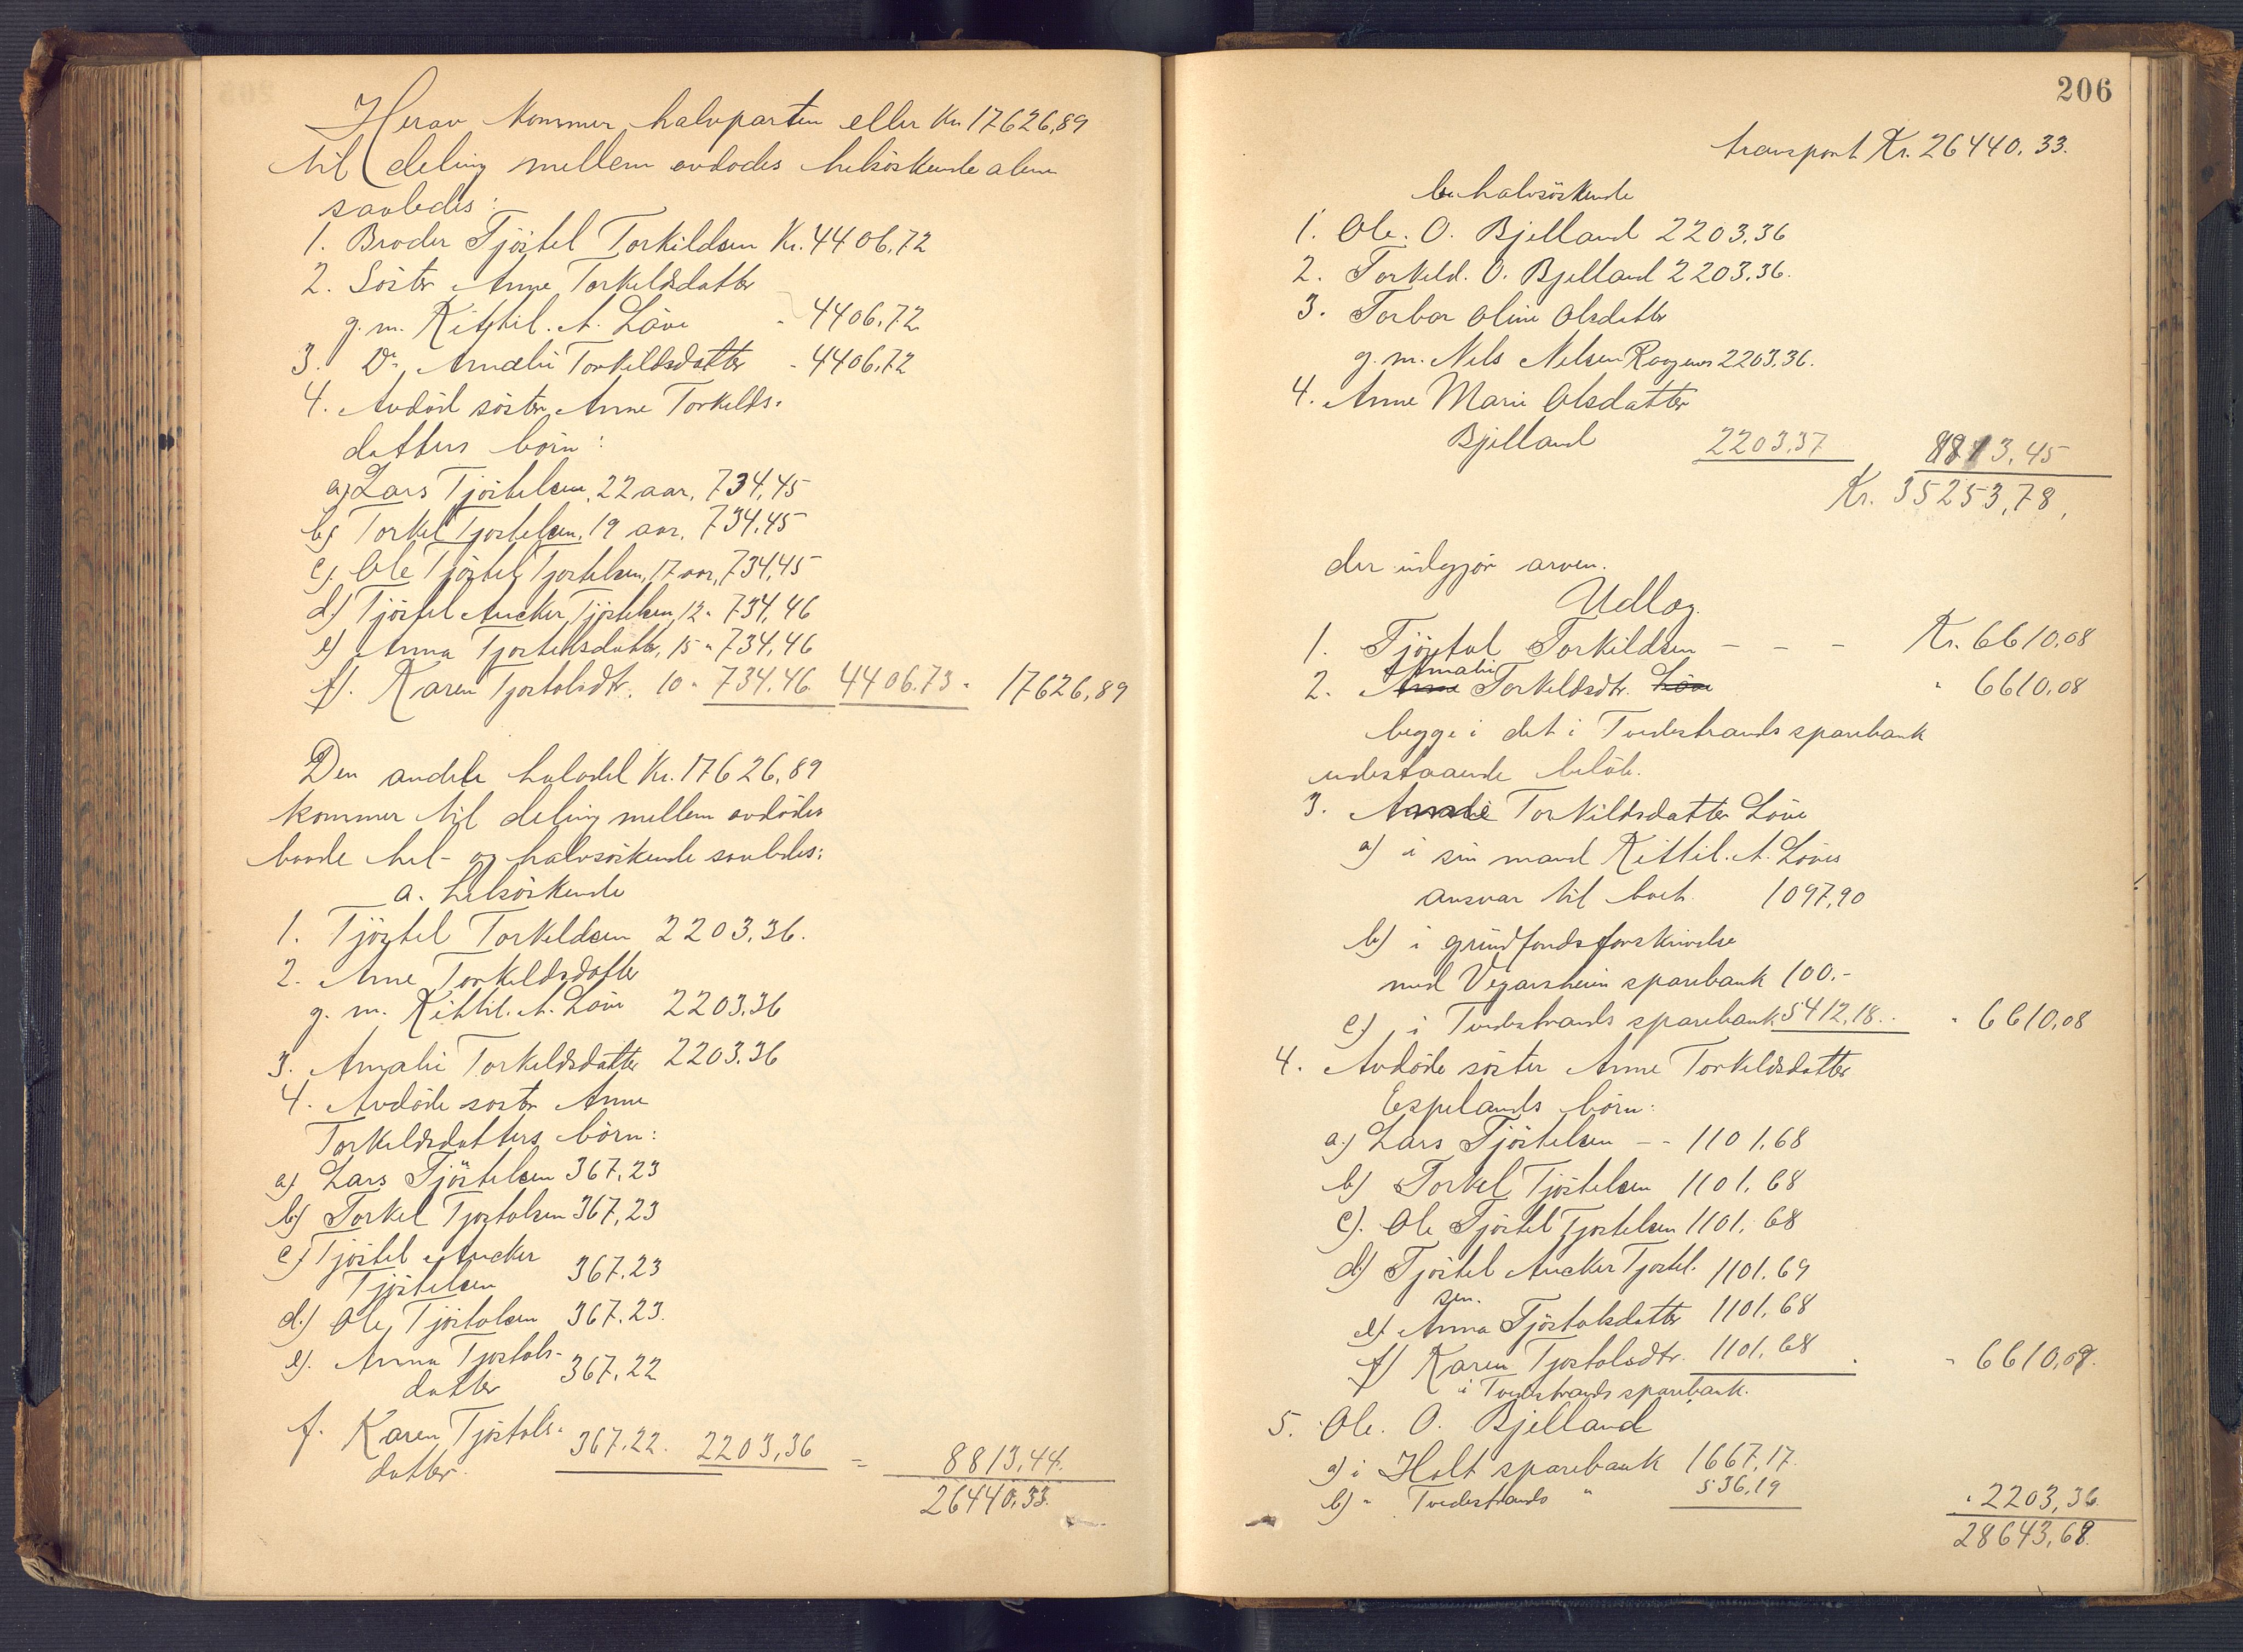 Herav kommer halvparten eller Kr. 17626,89
til deling mellem avdødes helsøskende alene
saaledes:
1. Broder Tjøstel Torkildsen Kr. 4406,72
2. Søster Anne Torkeldsdatter
g. m. Kittil. A. Løve - 4406,72
3. Do, Amalie Torkildsdatter - 4406,72
4. Avdød søster Anne Torkelds-
datters børn:
a) Lars Tjøstelsen, 22 aar, 734,45
b) Torkel Tjøstelsen, 19 aar, 734,45
c). Ole Tjøstel Tjøstelsen, 17 aar, 734,45
d.) Tjøstel Aucker Tjøstelsen, 12 " 734,46
e) Anna Tjøstelsdatter, 15 " 734,46
f). Karen Tjøstolsdtr. 10 " 734,46 4406,73 - 17626,89
Den andele halvdel Kr. 17626,89
kommer til deling mellem avdødes
baade hel- og halvsøskende saaledes:
a. helsøskende
1. Tjøstel Torkeldsen 2203,36.
2. Anne Torkeldsdatter
g. m. Kittil. A. Løve 2203,36
3. Amalie Torkeldsdatter 2203,36
4. Avdøde søster Anne
Torkeldsdatters børn:
a) Lars Tjøstelsen 367,23
b) Torkel Tjøstolsen 367,23
c) Tjøstel Aucker
Tjøstelsen 367,23
d.) Ole Tjøstolsen 367,23.
e). Anna Tjøstols-
datter 367,22
f. Karen Tjøstols-
datter. 367,22. 2203,36 = 8813,44.
26440,33.
206
transport Kr. 26440,33.
b. halvsøskende
1. Ole. O. Bjelland 2203,36
2. Torkeld. O. Bjelland 2203,36.
3. Torbor Oline Olsdatter
g. m. Nels Nelsen 2203,36.
4. Anne Marie Olsdatter
Bjelland 2203,37 8813,45
Kr. 35253,78,
der udgjør arven.
Udlæg.
1. Tjøstol Torkildsen - - - Kr. 6610,08
Amalie
2. Anne Torkeldsdtr. Løve " 6610,08
begge i det i Tvedestrands sparebank
udestaaende beløb.
3. Torkildsdatter Løve
a) i sin mand Kittil. A. Løves
ansvar til boet. 1097,90
b) i grundfondsforskrivelse
med Vegarsheim sparebank 100.-
c) i Tvedestrands sparebank 5412,18. " 6610,08
4. Avdøde søster Anne Torkeldsdatter
Espelands børn:
a.) Lars Tjøstelsen - - 1101,68
b) Torkel Tjøstelsen 1101,68
c). Ole Tjøstel Tjøstelsen 1101,68
d.) Tjøstel Aucker Tjøstel-
sen. 1101,69
e) Anna Tjøstolsdatter 1101,68
f) Karen Tjøstolsdtr. 1101,68 " 6610,09.
i Tvedestrands sparebank.
5. Ole. O. Bjelland
a) i Holt sparebank 1667,17.
b) " Tvedestrands " 536,19 " 2203,36.
28643,69.